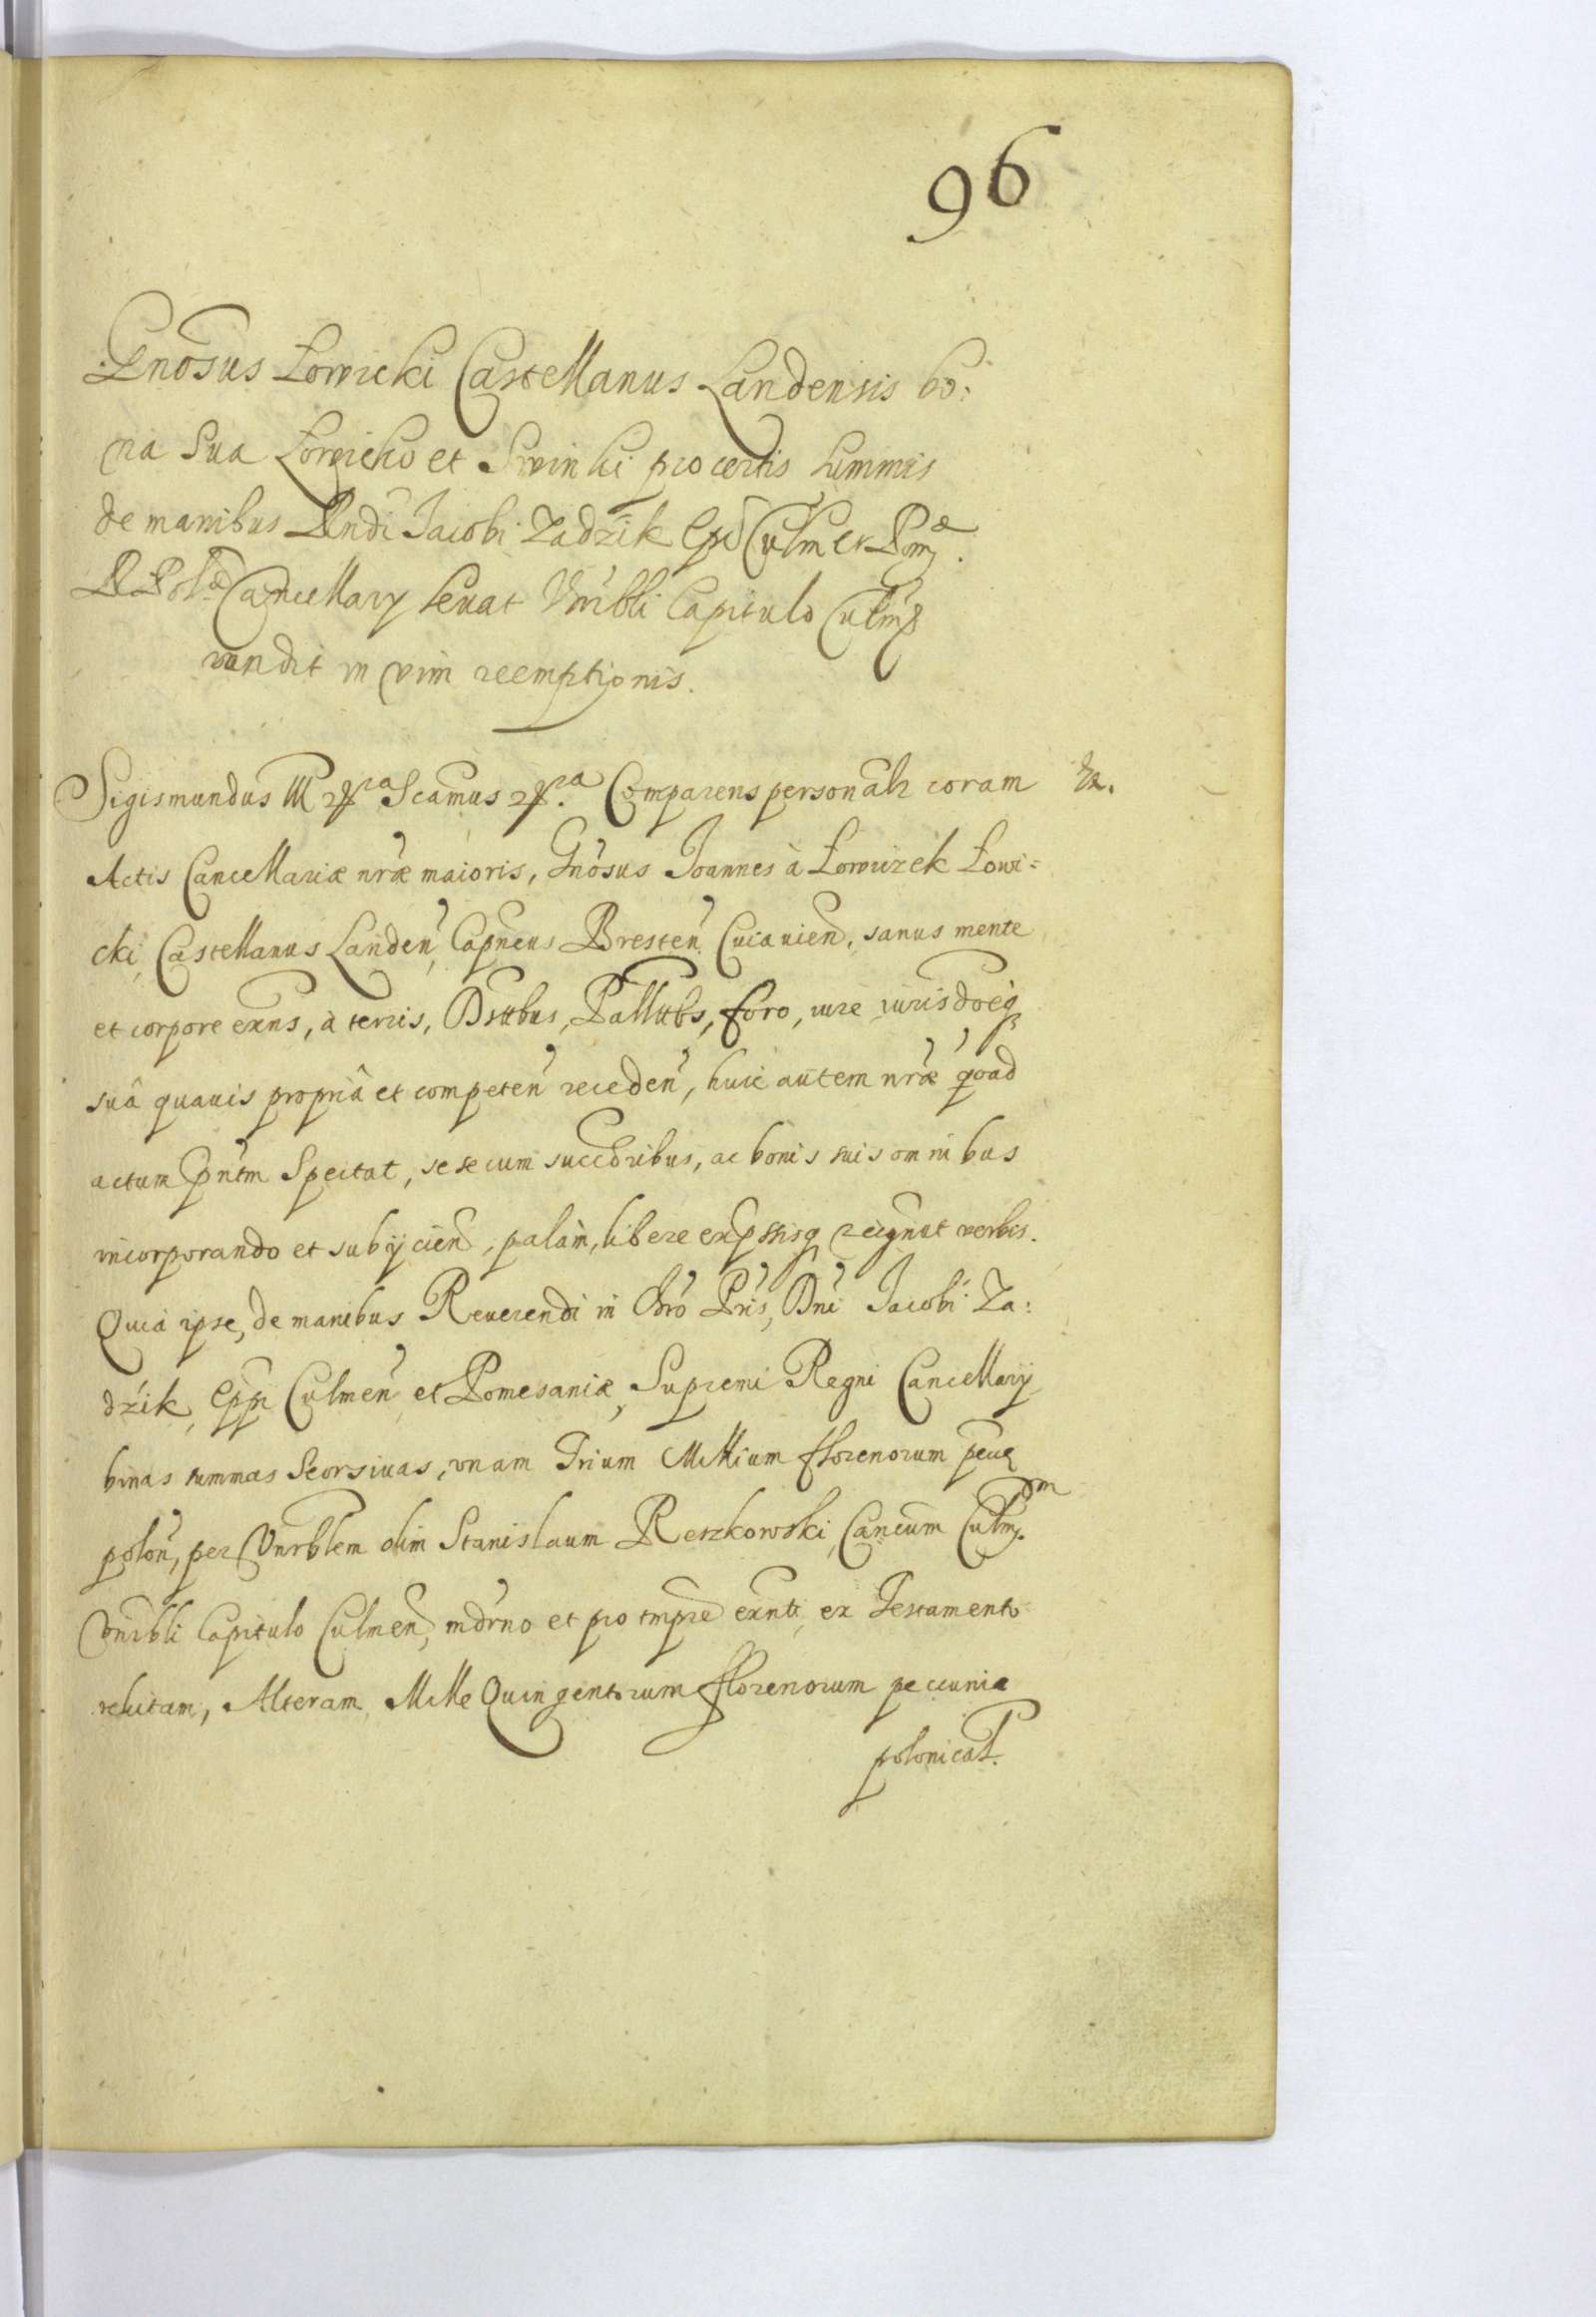 96
Gnosus Łowicki Castellanus Landensis bo:
na sua Łowicko et Swinki pro certis summis
de manibus Rndi Iacobi Zadzik Epi Culm et Pom.
Cancellarij leuat Vnrbli Capitulo Culm
vendit in vim reemptionis.
Sigismundus III &ra Scamus &ra. Comparens personalr coram
Actis Cancellariæ nræ maioris, Gnosus Joannes à Łowiczek Łowi=
cki, Castellanus Landen, Capneus Bresten Cuiauien, sanus mente
et corpore exns, à terris, Dsttbus, Pallttbs, foro, iure iurisdoeq
suâ quauis propriâ et competen receden, huic autem nræ qoad
actum pntm Spectat, se se cum succoribus, ac bonis suis omnibus
incorporando et subijcien, palam, libere expssisq recignuit verbis.
Quia ipse, de manibus Reuerendi in Chro Pris, Dni Jacobi Za:
dzik, Eppi Culmen et Pomesaniæ, Supremi Regni Cancellarij
binas summas Seorsiuas, vnam Trium Millium fflorenorum pecuæ
polon, per Vnrblem olim Stanislaum Reszkowski, Cancum Culm.
Vnrbli Capitulo Culmen, mdrno et pro tmpre exnti, ex Testamento
relictam, Alteram Mille Quingentorum fflorenorum pecuniæ
polonical.